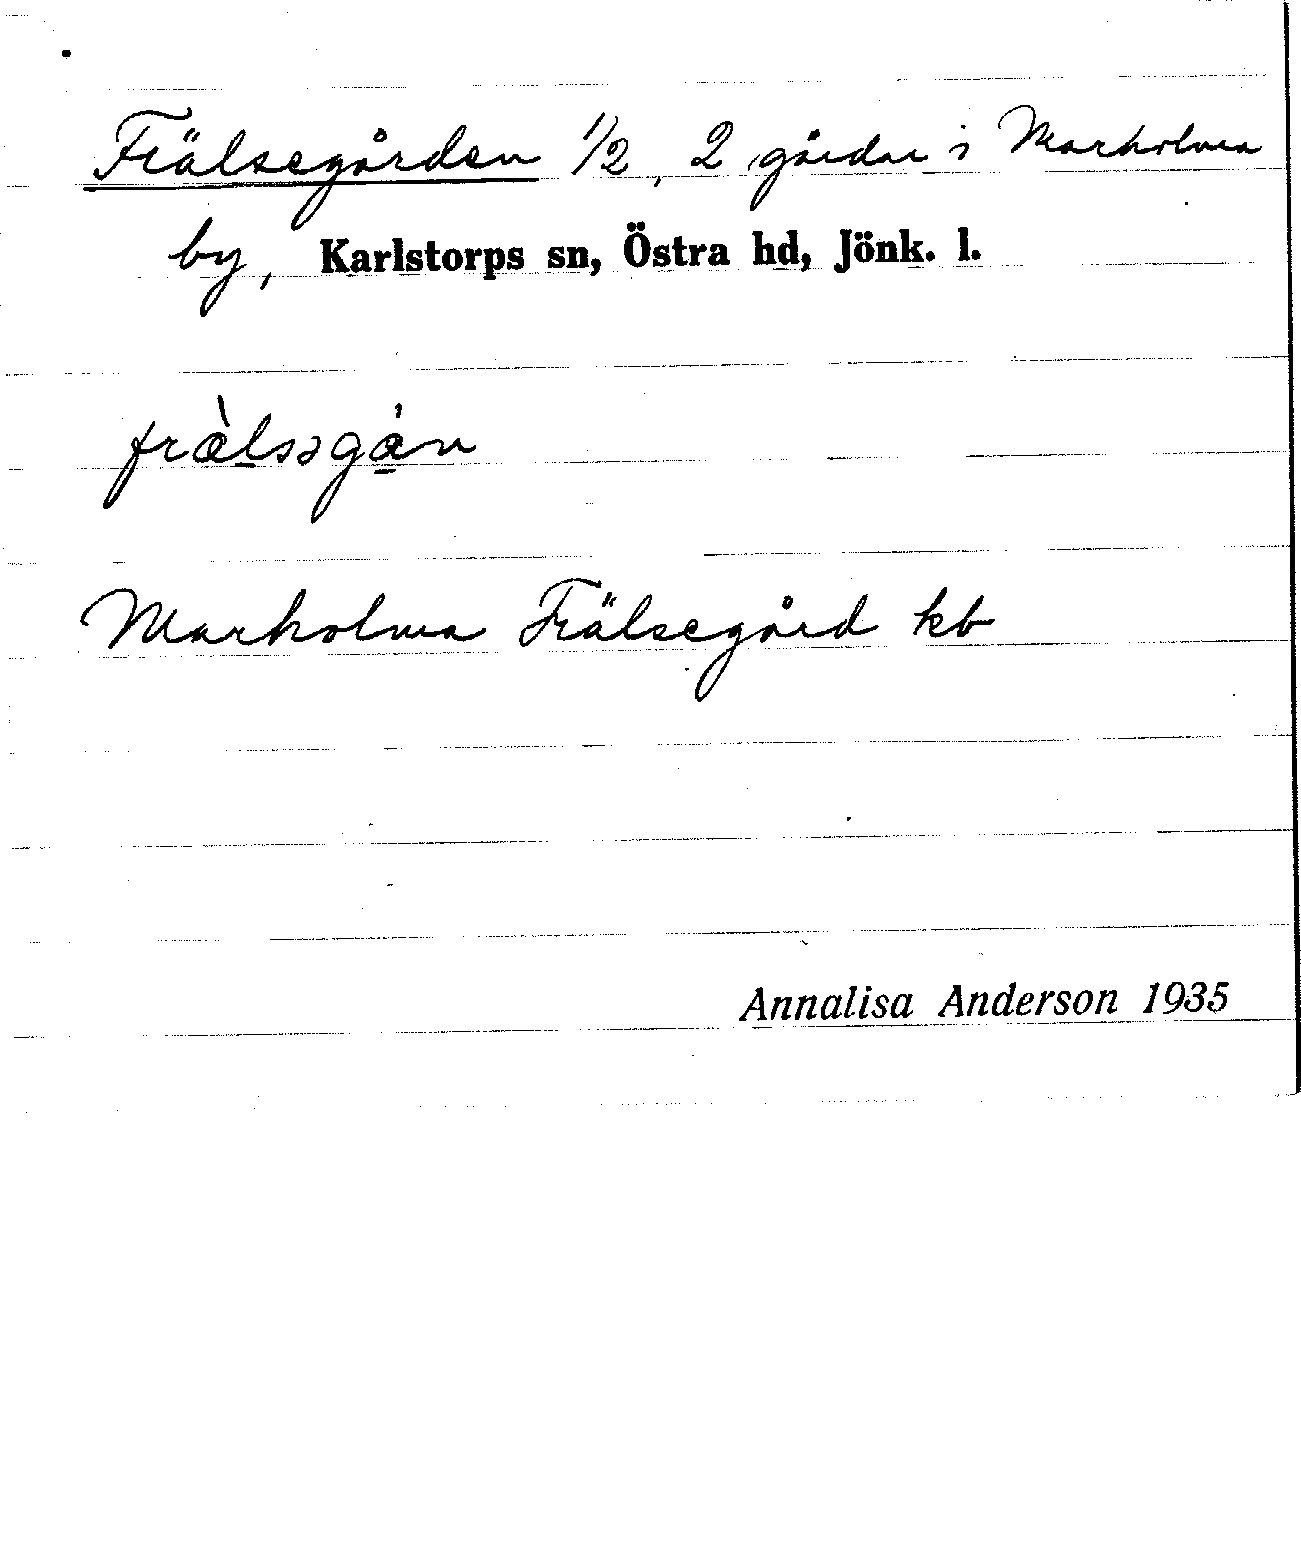 Frälsegården 1/2, 2 gårdar i Marholma
by, Karlstorps sn, Östra hd, Jönk. l.
Marholma Frälsegård kb
Annalisa Anderson 1935